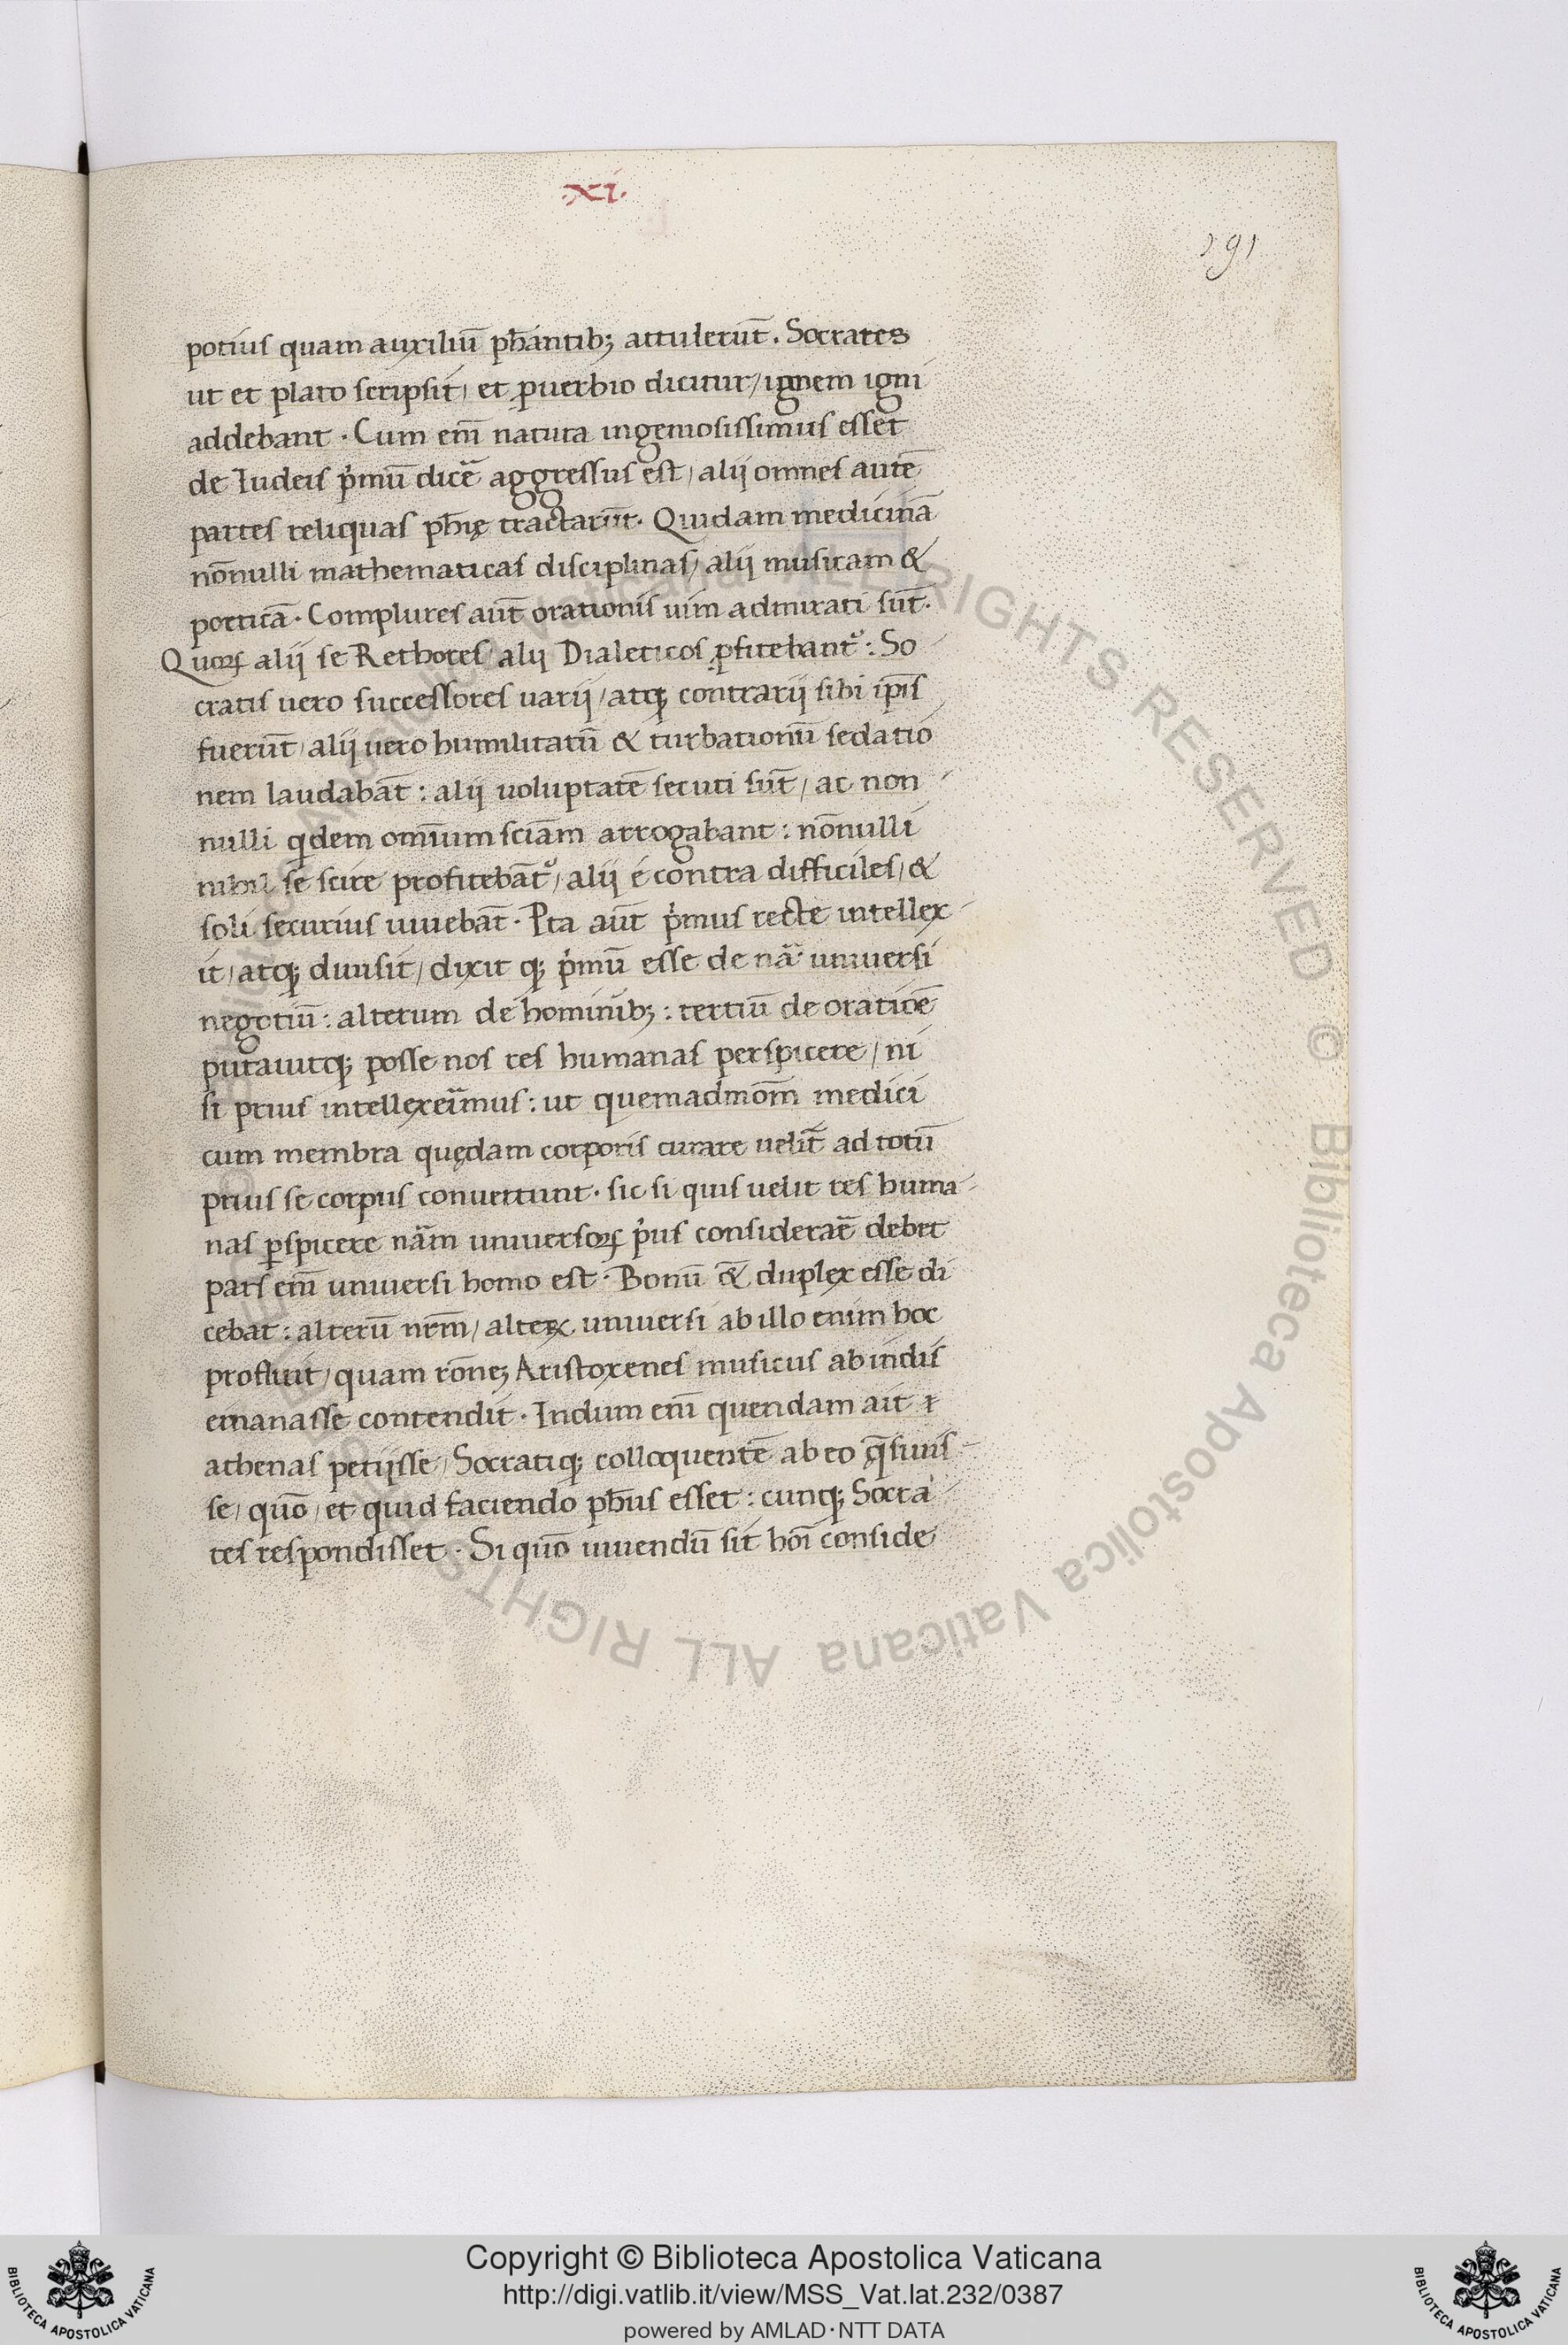 .xi.
191
potius quam auxiliū ph̄antib; attulerūt. Socrates
ut et plato scripsit, et ꝓuerbio dicitur, ignem igni
addebant. Cum em̄ natura ingeniosissimus esset
de Iudeis p̓mū dicē aggressus est, alij omnes autē
partes reliquas ph̄ię tractarūt. Quidam medicinā
nōnulli mathematicas disciplinas, alij musicam &
poeticā. Complures aūt orationis uim admirati sūt.
Quoꝝ alij se Rethores, alij Dialeticos ꝓfitebant᷑: So-
cratis uero successores uarij, atq; contrarij sibi ip̄is
fuerūt, alij uero humilitatū & turbationū sedatio
nem laudabāt: alij uoluptatē secuti sūt, ac non-
nulli qdem om̄ium sciām arrogabant: nōnulli
nihil se scire profitebāt᷑, alij é contra difficiles, &
soli securius uiuebāt. Pta aūt p̓mus recte intellex-
it, atq; diuisit, dixit q; p̓mū esse de nā uniuersi
negotiū: alterum de hominib;: tertiū de oratiōe
putauitq; posse nos res humanas perspicere, ni
si prius intellexeīmus: ut quemadmōm medici
cum membra quędam corporis curare uelīt ad totū
prius se corpus conuertunt. sic si quis uelit res huma-
nas ꝑspicere nām uniuersoꝝ p̓us considerarē debet
pars em̄ uniuersi homo est. Bonū &̄ duplex esse di
cebat: alterū nrm̄, alteꝝ uniuersi ab illo enim hoc
profluit, quam rōne; Aristoxenes musicus ab indis
emanasse contendit. Indum em̄ quendam ait
athenas petijsse, Socratiq; colloquentē ab eo q̄siuis-
se, quō, et quid faciendo ph̄us esset: cunq; Socra-
tes respondisset. Si quō uiuendū sit hoī conside-
© Biblioteca Apostolica Vaticana ALL RIGHTS RESERVED
Copyright © Biblioteca Apostolica Vaticana
http://digi.vatlib.it/view/MSS_Vat.lat.232/0387
powered by AMLAD·NTT DATA
BIBLIOTECA APOSTOLICA VATICANA
BIBLIOTECA APOSTOLICA VATICANA